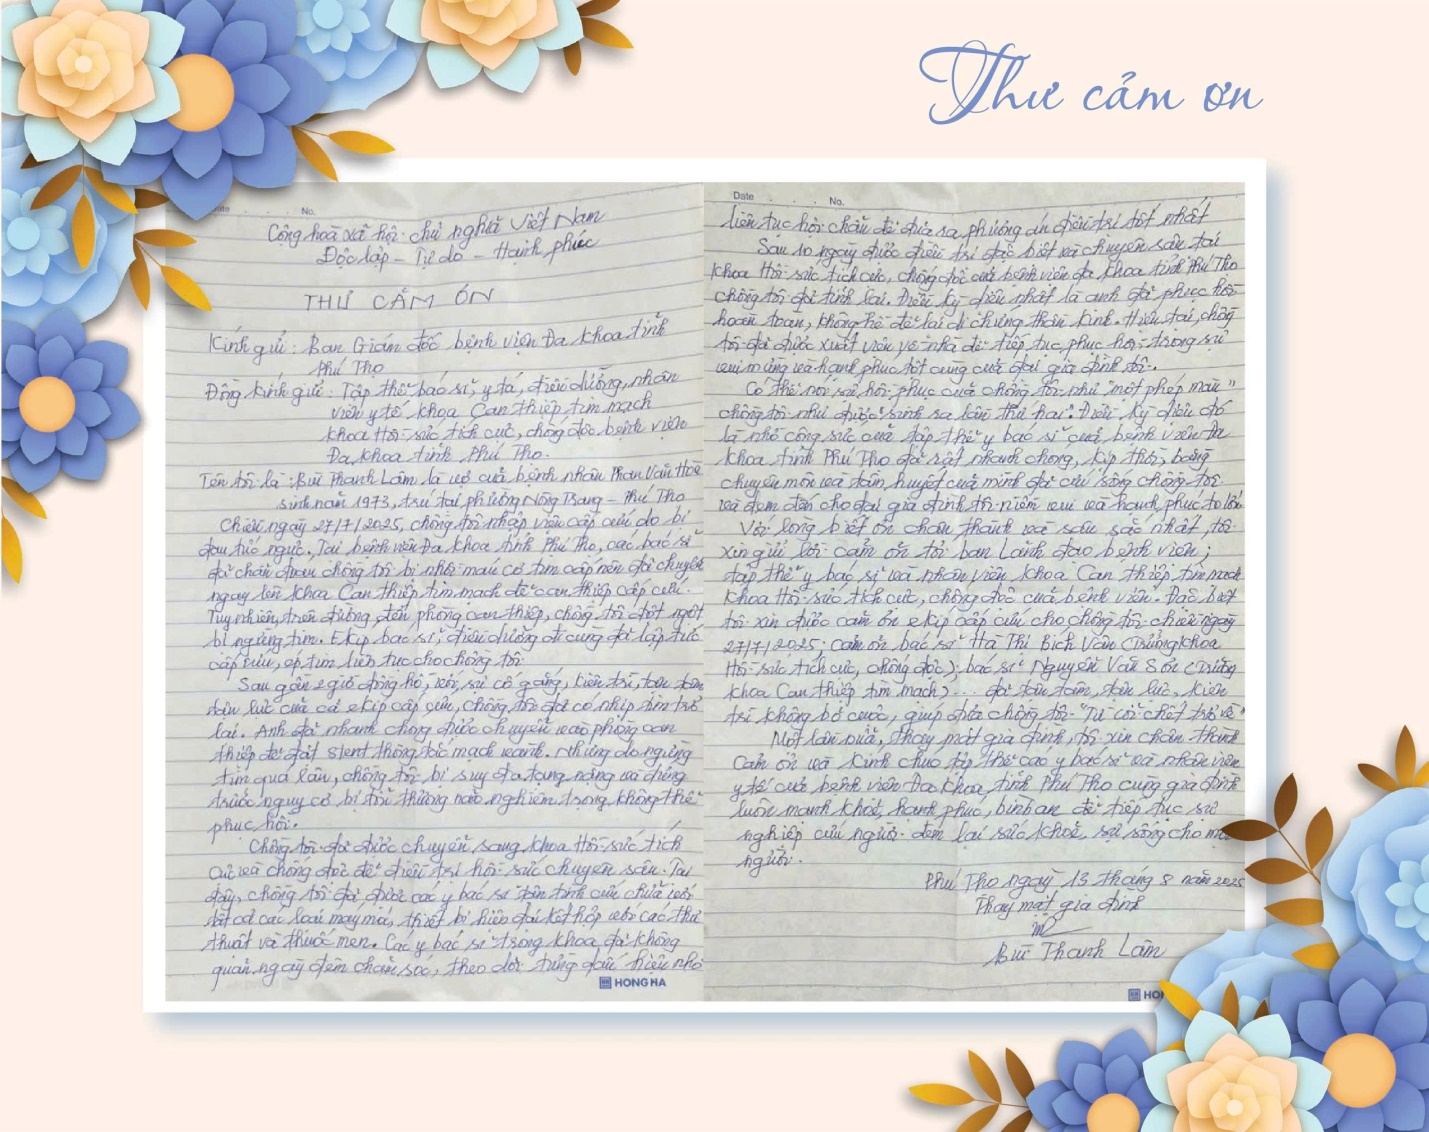 Thư cảm ơn
Date No.
Cộng hoà xã hội chủ nghĩa Việt Nam
Độc lập - Tự do - Hạnh phúc
THƯ CẢM ƠN
Kính gửi: Ban Giám đốc bệnh viện Đa khoa tỉnh
Phú Thọ
Đồng kính gửi: Tập thể bác sĩ, y tá, điều dưỡng, nhân
viên y tế khoa Can thiệp tim mạch
khoa Hồi sức tích cực, chống độc bệnh viện
Đa khoa tỉnh Phú Thọ.
Tên tôi là: Bùi Thanh Lâm là vợ của bệnh nhân Phan Văn Hoè
sinh năm 1973, trú tại phường Nông Trang - Phú Thọ
Chiều ngày 27/7/2025, chồng tôi nhập viện cấp cứu do bị
đau tức ngực. Tại bệnh viện Đa khoa tỉnh Phú Thọ, các bác sĩ
đã chẩn đoán chồng tôi bị nhồi máu cơ tim cấp nên đã chuyển
ngay lên khoa Can thiệp tim mạch để can thiệp cấp cứu.
Tuy nhiên, trên đường đến phòng can thiệp, chồng tôi đột ngột
bị ngừng tim. Ekip bác sĩ, điều dưỡng đi cùng đã lập tức
cấp cứu, ép tim liên tục cho chồng tôi
Sau gần 2 giờ đồng hồ, với sự cố gắng, kiên trì, tận tâm
tận lực của cả ekip cấp cứu, chồng tôi đã có nhịp tim trở
lại. Anh đã nhanh chóng được chuyển vào phòng can
thiệp để đặt stent thông tắc mạch vành. Nhưng do ngừng
tim quá lâu, chồng tôi bị suy đa tạng nặng và đứng
trước nguy cơ bị tổn thương não nghiêm trọng không thể
phục hồi.
Chồng tôi đã được chuyển sang khoa Hồi sức tích
cực và chống độc để điều trị hồi sức chuyên sâu. Tại
đây, chồng tôi đã được các y bác sĩ tận tình cứu chữa với
tất cả các loại máy móc, thiết bị hiện đại kết hợp với các thủ
thuật và thuốc men. Các y bác sĩ trong khoa đã không
quản ngày đêm chăm sóc, theo dõi từng dấu hiệu nhỏ
HONG HA
Date No.
liên tục hội chẩn để đưa ra phương án điều trị tốt nhất
Sau 10 ngày được điều trị đặc biệt và chuyên sâu tại
khoa Hồi sức tích cực, chống độc của bệnh viện đa khoa tỉnh Phú Thọ
chồng tôi đã tỉnh lại. Điều kỳ diệu nhất là anh đã phục hồi
hoàn toàn, không hề để lại di chứng thần kinh. Hiện tại, chồng
tôi đã được xuất viện về nhà để tiếp tục phục hồi trong sự
vui mừng và hạnh phúc tột cùng của đại gia đình tôi.
Có thể nói sự hồi phục của chồng tôi như "một phép màu"
chồng tôi như được sinh ra lần thứ hai. Điều kỳ diệu đó
là nhờ công sức của tập thể y bác sĩ của bệnh viện Đa
khoa tỉnh Phú Thọ đã rất nhanh chóng, kịp thời, bằng
chuyên môn và tâm huyết của mình đã cứu sống chồng tôi
và đem đến cho đại gia đình tôi niềm vui và hạnh phúc to lớn.
Với lòng biết ơn chân thành và sâu sắc nhất, tôi
xin gửi lời cảm ơn tới ban Lãnh đạo bệnh viện;
tập thể y bác sĩ và nhân viên khoa Can thiệp tim mạch
khoa Hồi sức tích cực, chống độc của bệnh viện. Đặc biệt
tôi xin được cảm ơn ekip cấp cứu cho chồng tôi chiều ngày
27/7/2025; cảm ơn bác sĩ Hà Thị Bích Vân (Trưởng khoa
Hồi sức tích cực, chống độc); bác sĩ Nguyễn Văn Sơn (Trưởng
khoa Can thiệp tim mạch)... đã tận tâm, tận lực, kiên
trì không bỏ cuộc, giúp đưa chồng tôi "Từ cõi chết trở về"
Một lần nữa, thay mặt gia đình, tôi xin chân thành
cảm ơn và kính chúc tập thể các y bác sĩ và nhân viên
y tế của bệnh viện Đa khoa tỉnh Phú Thọ cùng gia đình
luôn mạnh khoẻ, hạnh phúc, bình an để tiếp tục sự
nghiệp cứu người đem lại sức khoẻ, sự sống cho mọi
người.
Phú Thọ ngày 13 tháng 8 năm 2025
Thay mặt gia đình
Bùi Thanh Lâm